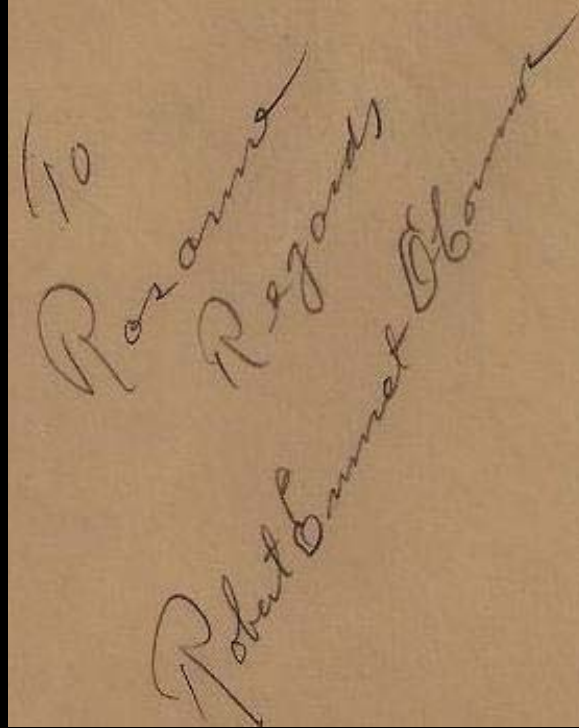 To
Rosanne
Regards
Robert Emmet O'Connor